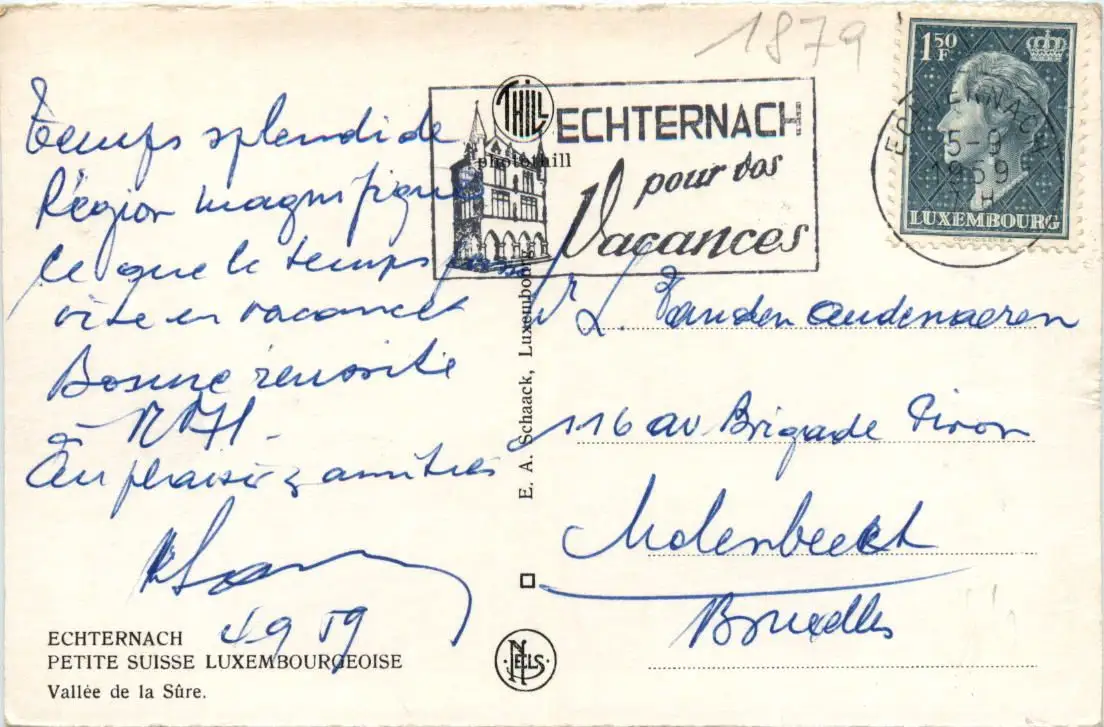 1879
Temps splendide
Région magnifique
Ce que le temps passe
vite en vacances
Bonne réussite
à
Au plaisir & amitiés
4 9 59
ECHTERNACH
PETITE SUISSE LUXEMBOURGEOISE
Vallée de la Sûre.
THILL
photothill
E. A. Schaack, Luxembourg
NELS
ECHTERNACH
pour vos
Vacances
1 50 F
LUXEMBOURG
COURVOISIER S.A.
ECHTERNACH
5-9
1959
H
Mr L. Vanden audenaeren
116 av Brigade Piron
Molenbeek
Bruxelles